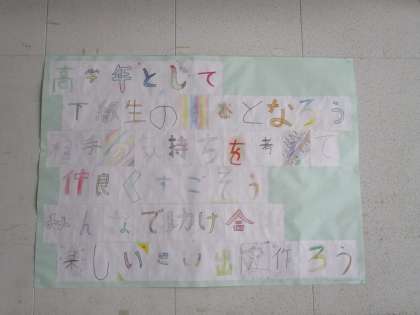 高学年として
下級生の となろう
相手の気持ちを考えて
仲良くすごそう
みんなで助け合
楽しい思い出を作ろう